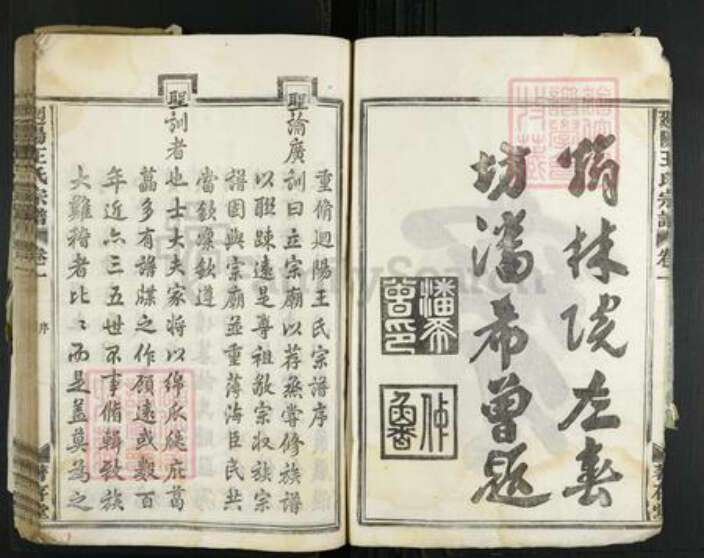 翰林院左春
坊潘希曾題
潘希曾印
重脩迴陽王氏宗譜序
聖諭廣訓曰立宗廟以荐烝嘗修族譜
以聯踈遠是尊祖敬宗収族宗
譜固與宗廟並重薄海臣民共
當欽懍欽遵
聖訓者也士大夫家將以綿瓜瓞庇葛
藟多有譜牒之作顧遠或數百
年近亦三五世不事脩輯致族
大難稽者比〻而是蓋莫為之
迴陽王氏宗譜 卷一 序